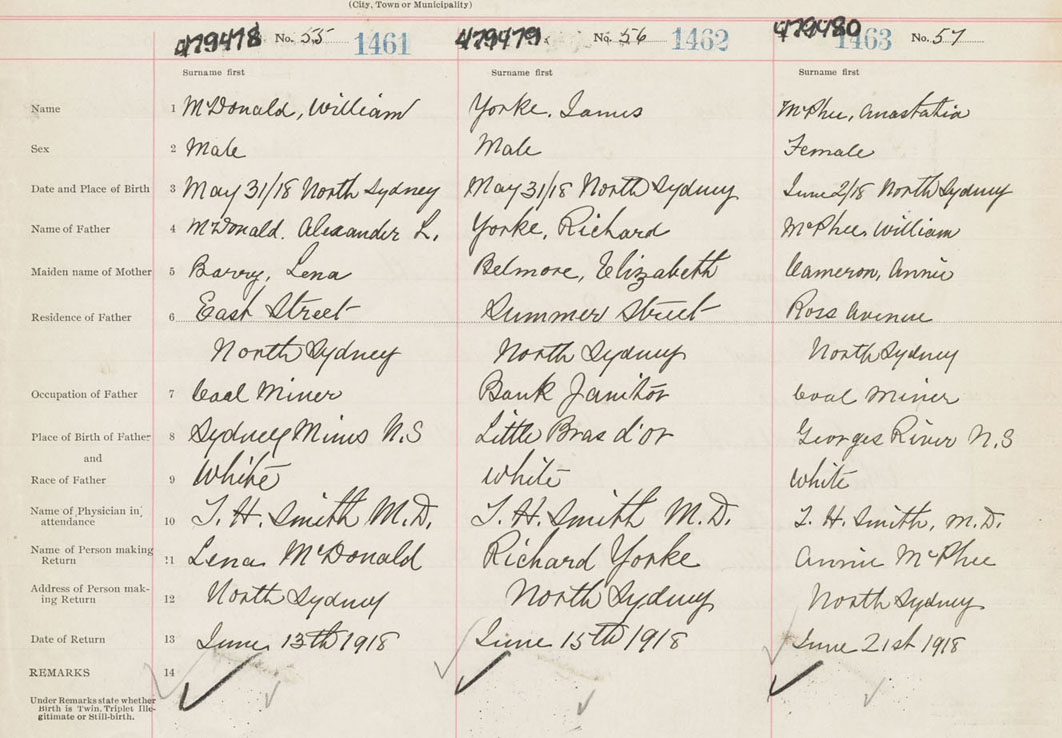 (City, Town or Municipality)
479478 No. 55 1461 479479 No. 56 1462 479480 1463 No. 57
Surname first Surname first Surname first
Name 1 McDonald, William Yorke, James McPhee, Anastatia
Sex 2 Male Male Female
Date and Place of Birth 3 May 31/18 North Sydney May 31/18 North Sydney June 2/18 North Sydney
Name of Father 4 McDonald. Alexander L. Yorke, Richard McPhee, William
Maiden name of Mother 5 Barry, Lena Belmore, Elizabeth Cameron, Annie
Residence of Father 6 East Street Summer Street Ross Avenue
North Sydney North Sydney North Sydney
Occupation of Father 7 Coal Miner Bank Janitor Coal Miner
Place of Birth of Father 8 Sydney Mines N.S Little Bras d'or Georges River N.S
and
Race of Father 9 White White White
Name of Physician in attendance 10 T. H. Smith M.D. T. H. Smith M.D. T. H. Smith, M.D.
Name of Person making Return 11 Lena McDonald Richard Yorke Annie McPhee
Address of Person mak-ing Return 12 North Sydney North Sydney North Sydney
Date of Return 13 June 13th 1918 June 15th 1918 June 21st 1918
REMARKS 14
Under Remarks state whether
Birth is Twin, Triplet Ille-
gitimate or Still-birth.